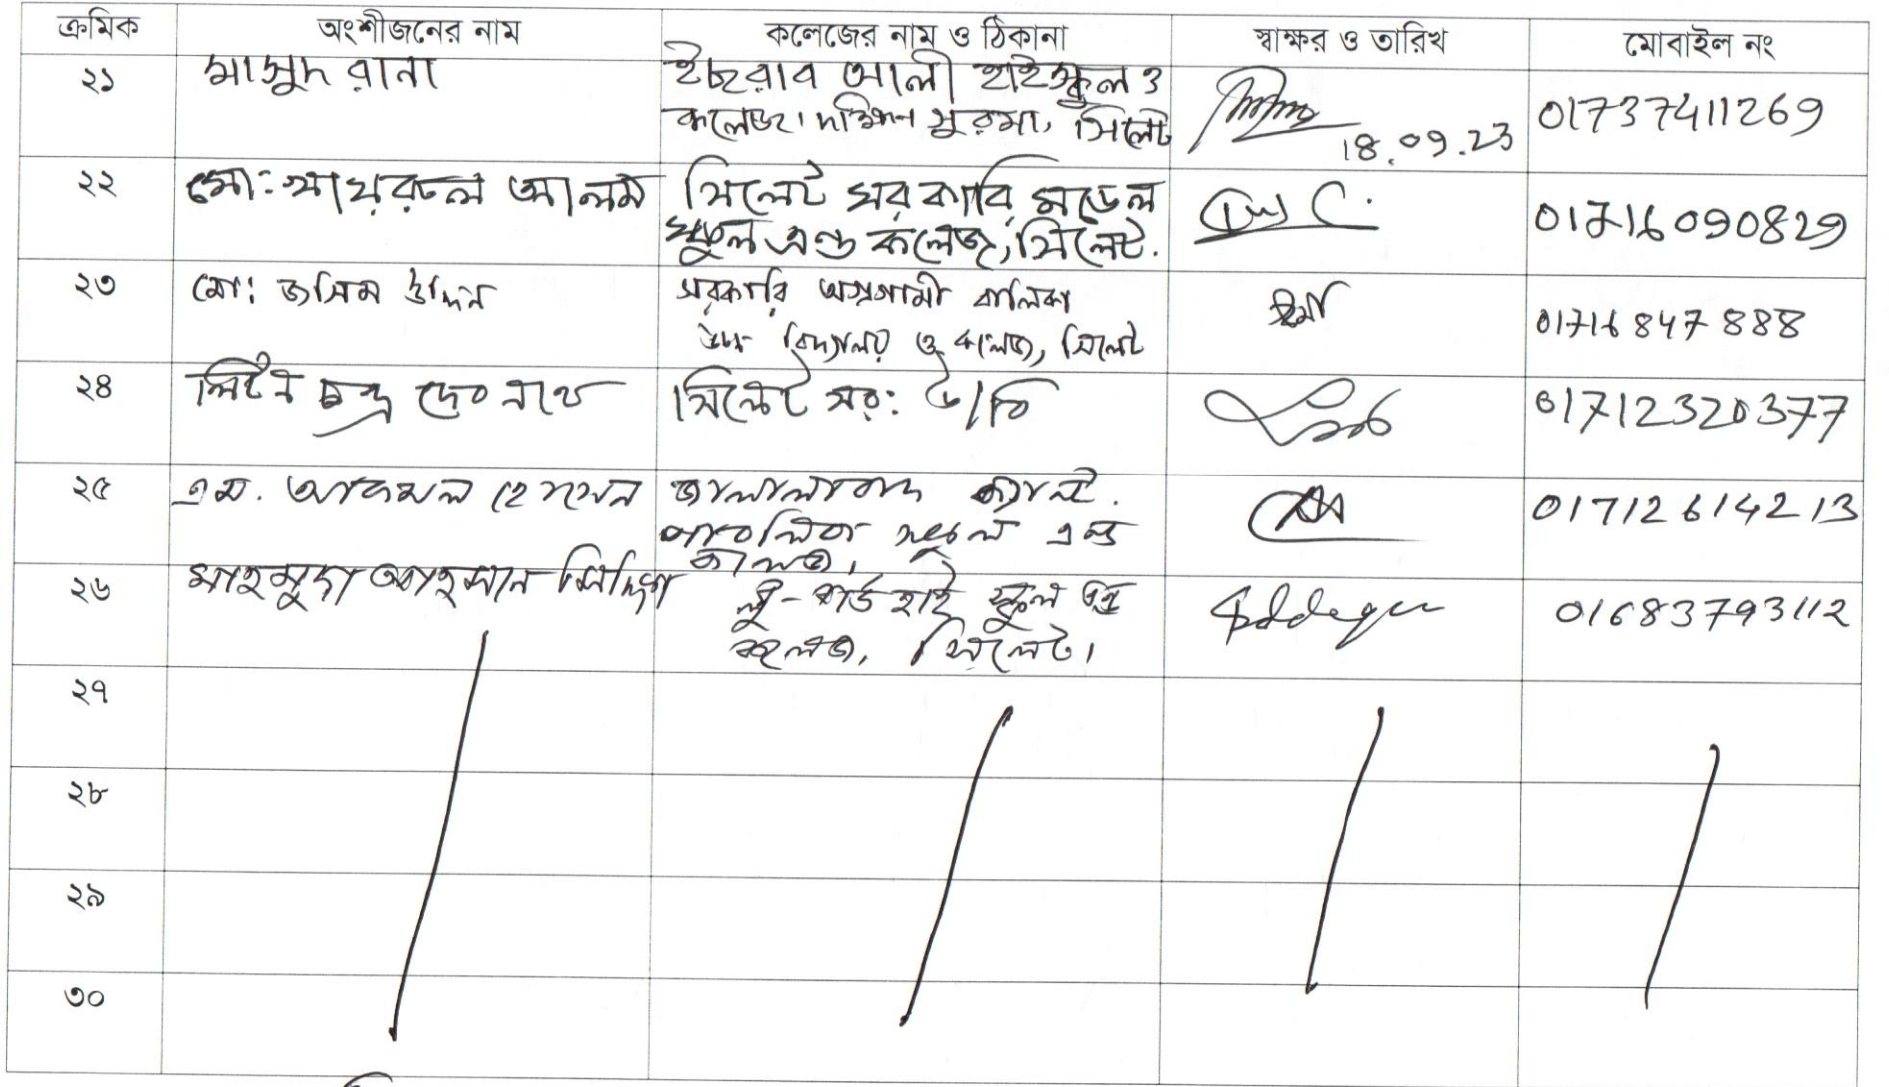 ক্রমিক অংশীজনের নাম কলেজের নাম ও ঠিকানা স্বাক্ষর ও তারিখ মোবাইল নং
২১ মাসুদ রানা ইছরাব আলী হাইস্কুল ও
কলেজ। দক্ষিণ সুরমা, সিলেট 18.09.23 01737411269
২২ মো: খায়রুল আলম সিলেট সরকারি মডেল
স্কুল এন্ড কলেজ, সিলেট. 01716090829
২৩ মো: জসিম উদ্দিন সরকারি অগ্রগামী বালিকা
উচ্চ বিদ্যালয় ও কলেজ, সিলেট 01716847888
২৪ লিটন চন্দ্র দেবনাথ সিলেট সর: 01712320377
২৫ এম. আকমল হোসেন জালালাবাদ ক্যান্ট.
পাবলিক স্কুল এন্ড
কলেজ। 01712614213
২৬ মাহমুদা আহসান সিদ্দিকা ব্লু-বার্ড হাই স্কুল এন্ড
কলেজ, সিলেট। 01683793112
২৭
২৮
২৯
৩০